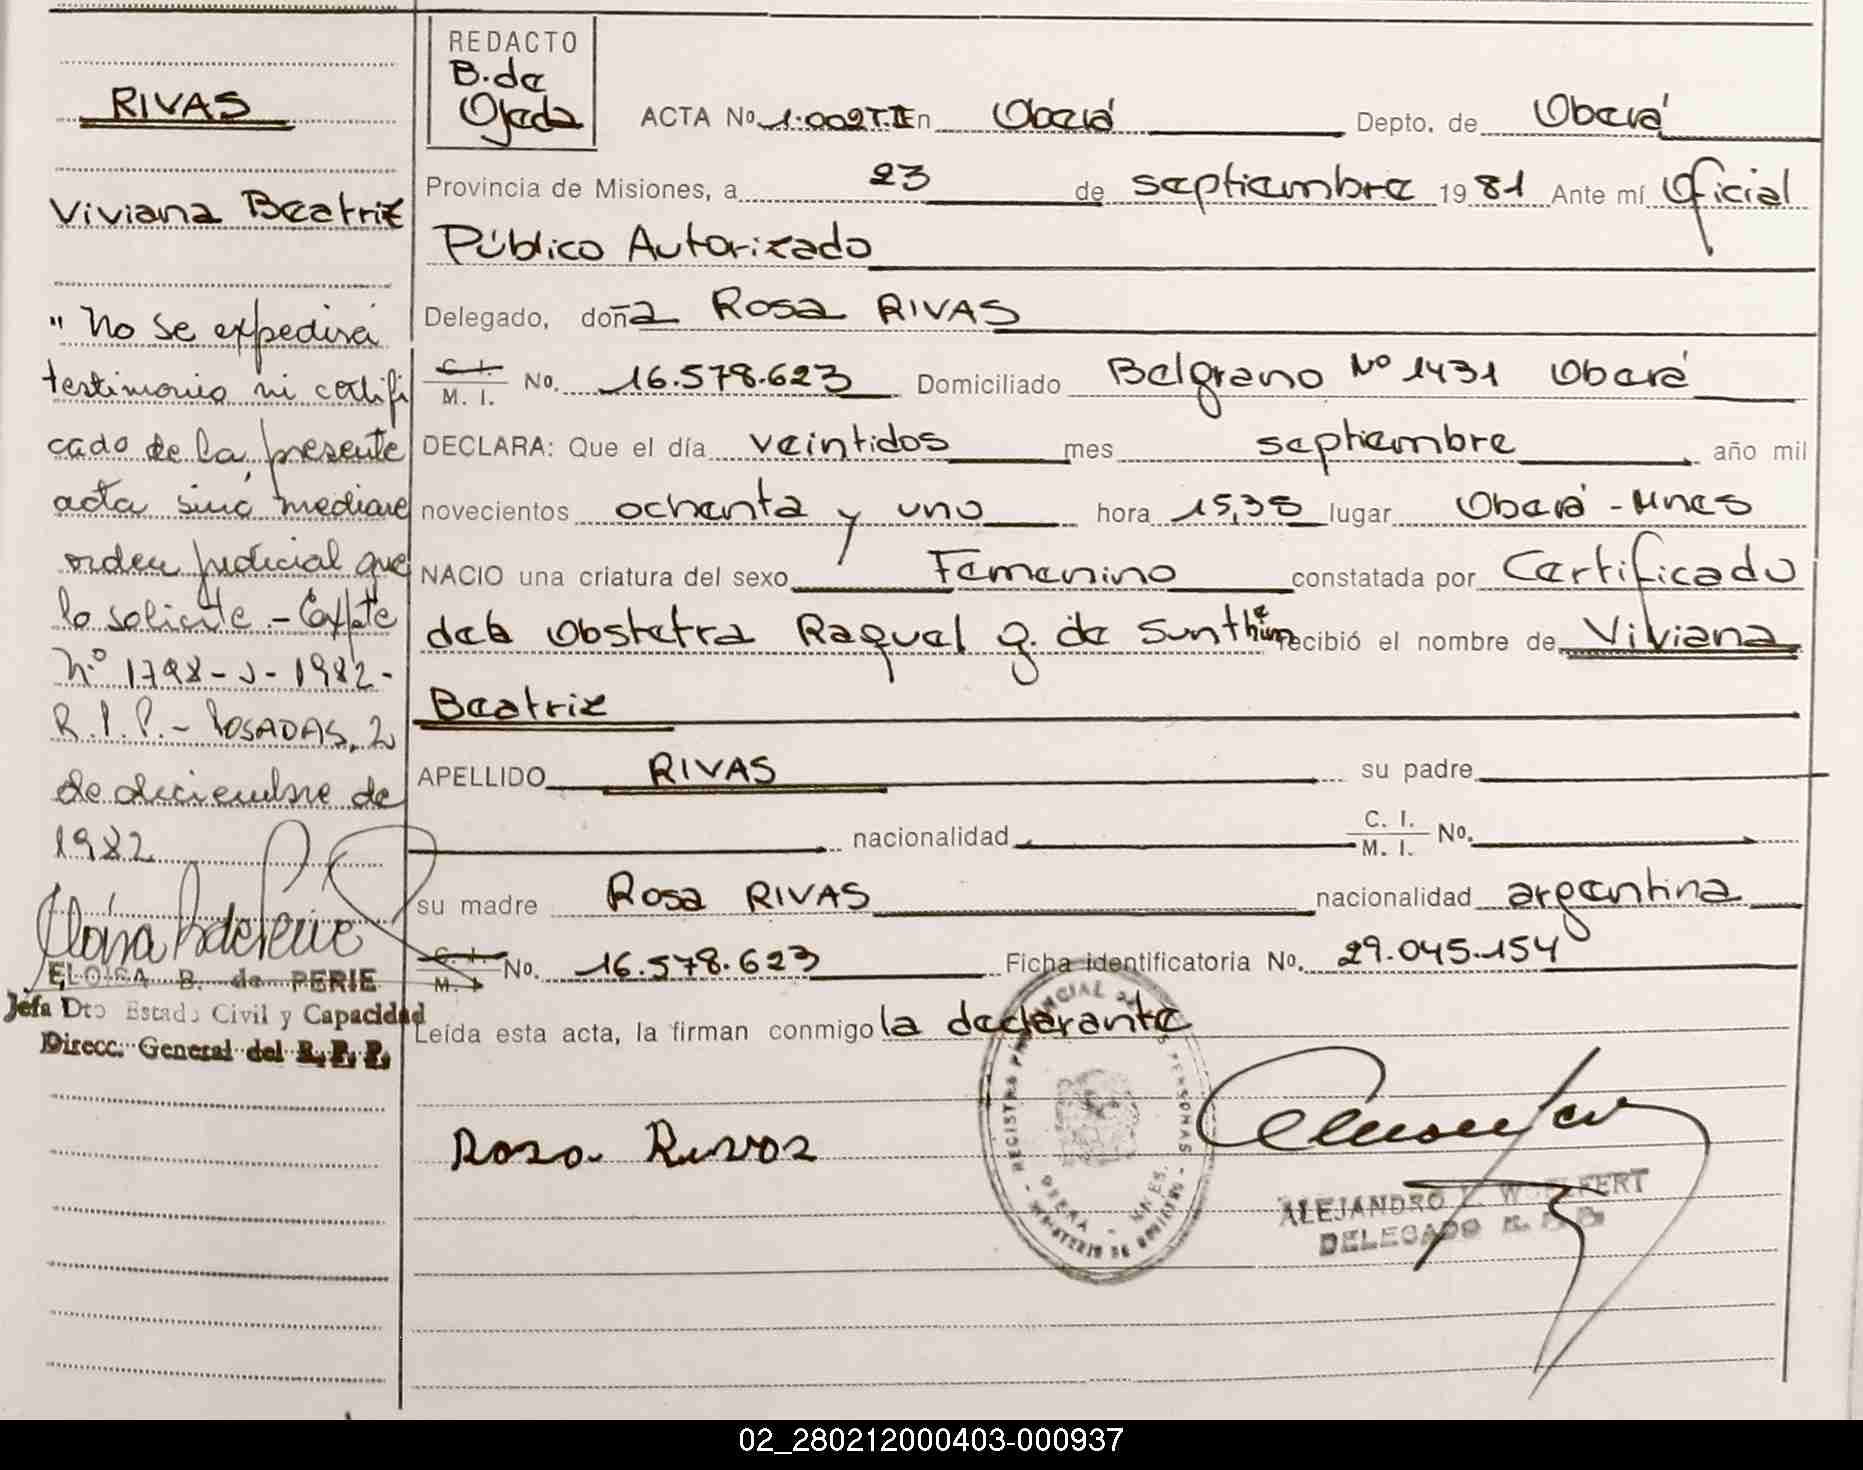 RIVAS
Viviana Beatriz
"No se expedirá
testimonio ni certifi
cado de la presente
acta sinó mediare
orden judicial que
lo solicite - Expte
Nº 1798-J-1982-
R.P.P. - POSADAS, 2
de diciembre de
1982
ELOISA B. de PERIE
Jefa Dto Estado Civil y Capacidad
Direcc. General del R. P. P.
REDACTO
B. de
Ojeda
ACTA No 1.002TII En Oberá Depto. de Oberá
Provincia de Misiones, a 23 de septiembre 19 81 Ante mí Oficial
Público Autorizado
Delegado, doña Rosa RIVAS
C. I. M. I. No. 16.578.623 Domiciliado Belgrano Nº 1431 Oberá
DECLARA: Que el día veintidos mes septiembre año mil
novecientos ochenta y uno hora 15,35 lugar Oberá - Mnes
NACIO una criatura del sexo Femenino constatada por Certificado
de la Obstetra Raquel G. de recibió el nombre de Viviana
Beatriz
APELLIDO RIVAS su padre
nacionalidad C. I. M. I. No.
su madre Rosa RIVAS nacionalidad argentina
C. I. M. I. No. 16.578.623 Ficha identificatoria No. 29.045.154
Leída esta acta, la firman conmigo la declarante
Rosa Rivas
REGISTRO PROVINCIAL DE LAS PERSONAS - MINISTERIO DE GOBIERNO -
OBERA - MNES.
ALEJANDRO WOELFERT
DELEGADO R. P. P.
02_280212000403-000937